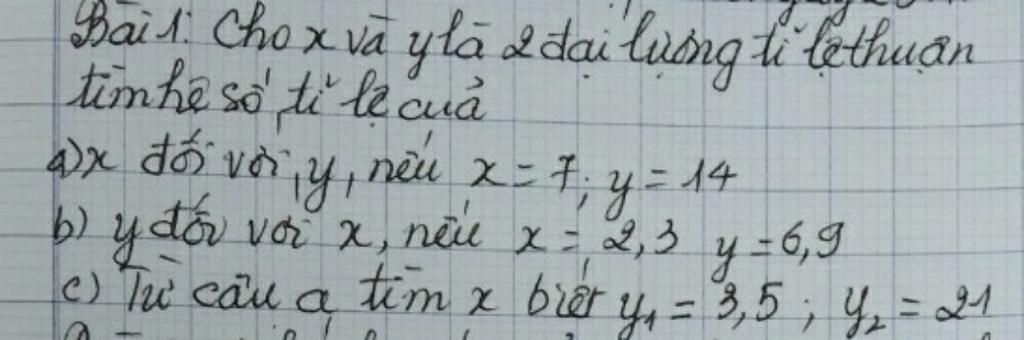 Bài 1: Cho x và y là 2 đại lượng tỉ lệ thuận
tìm hệ số tỉ lệ của
a) x đối với y, nếu x = 7; y = 14
b) y đối với x, nếu x = 2,3 y = 6,9
c) Từ câu a tìm x biết y₁ = 3,5 ; y₂ = 21